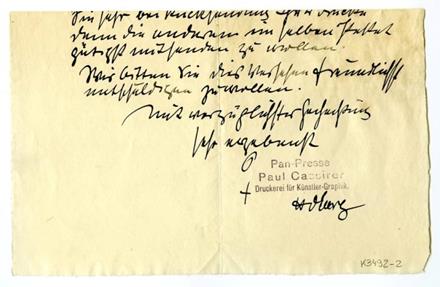 Sie sehr bei Rücksendung der Drucke
denn die anderen im selben Packet
gütigst mitsenden zu wollen.
Wir bitten Sie dies Versehen freundlichst
entschuldigen zu wollen.
Mit vorzüglichster Hochachtung
sehr ergebenst
Pan-Presse
Paul Cassirer
Druckerei für Künstler-Graphik.
K3492-2